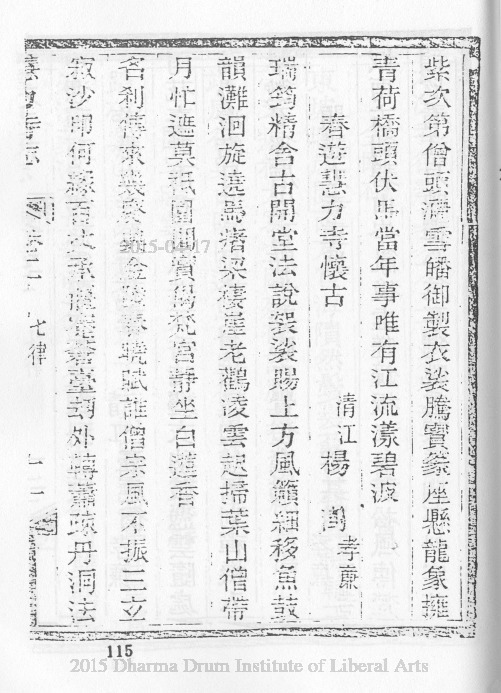 紫次第僧頭滿雪皤御製衣裳騰寶篆座懸龍象擁
青荷橋頭伏馬當年事唯有江流漾碧波
春遊慧力寺懷古
清江楊 孝廉
瑞筠精舍古開堂法說袈裟賜上方風籟細移魚鼓
韻灘洄旋遶渚梁棲崖老鸛凌雲起掃葉山僧帶
月忙遮莫祇園開賓梵宮靜坐白蓮香
名剎傳來幾賦誰僧宗風不振三立
寂沙印何緣百丈承臺劫外轉蕭疎丹洞法
慧力寺志
卷二
七律
十一
115
2015-04-17
2015 Dharma Drum Institute of Liberal Arts